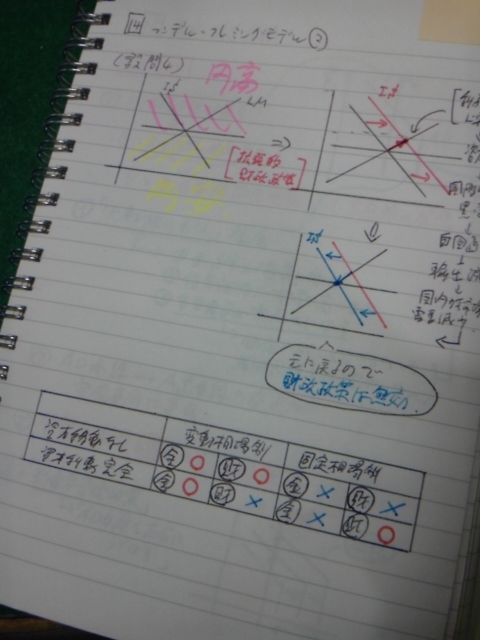 14 マンデル・フレミングモデル②
(設問4)
円高
IS
LM
⇒
[拡張的
財政政策]
円安
IS
国内
黒字
自国通
輸出減
国内
需要減少
IS
元に戻るので
財政政策は無効
変動相場制
固定相場制
資本移動なし
金 ○ 財 ○ 金 × 財 ×
資本移動完全
金 ○ 財 × 金 × 財 ○